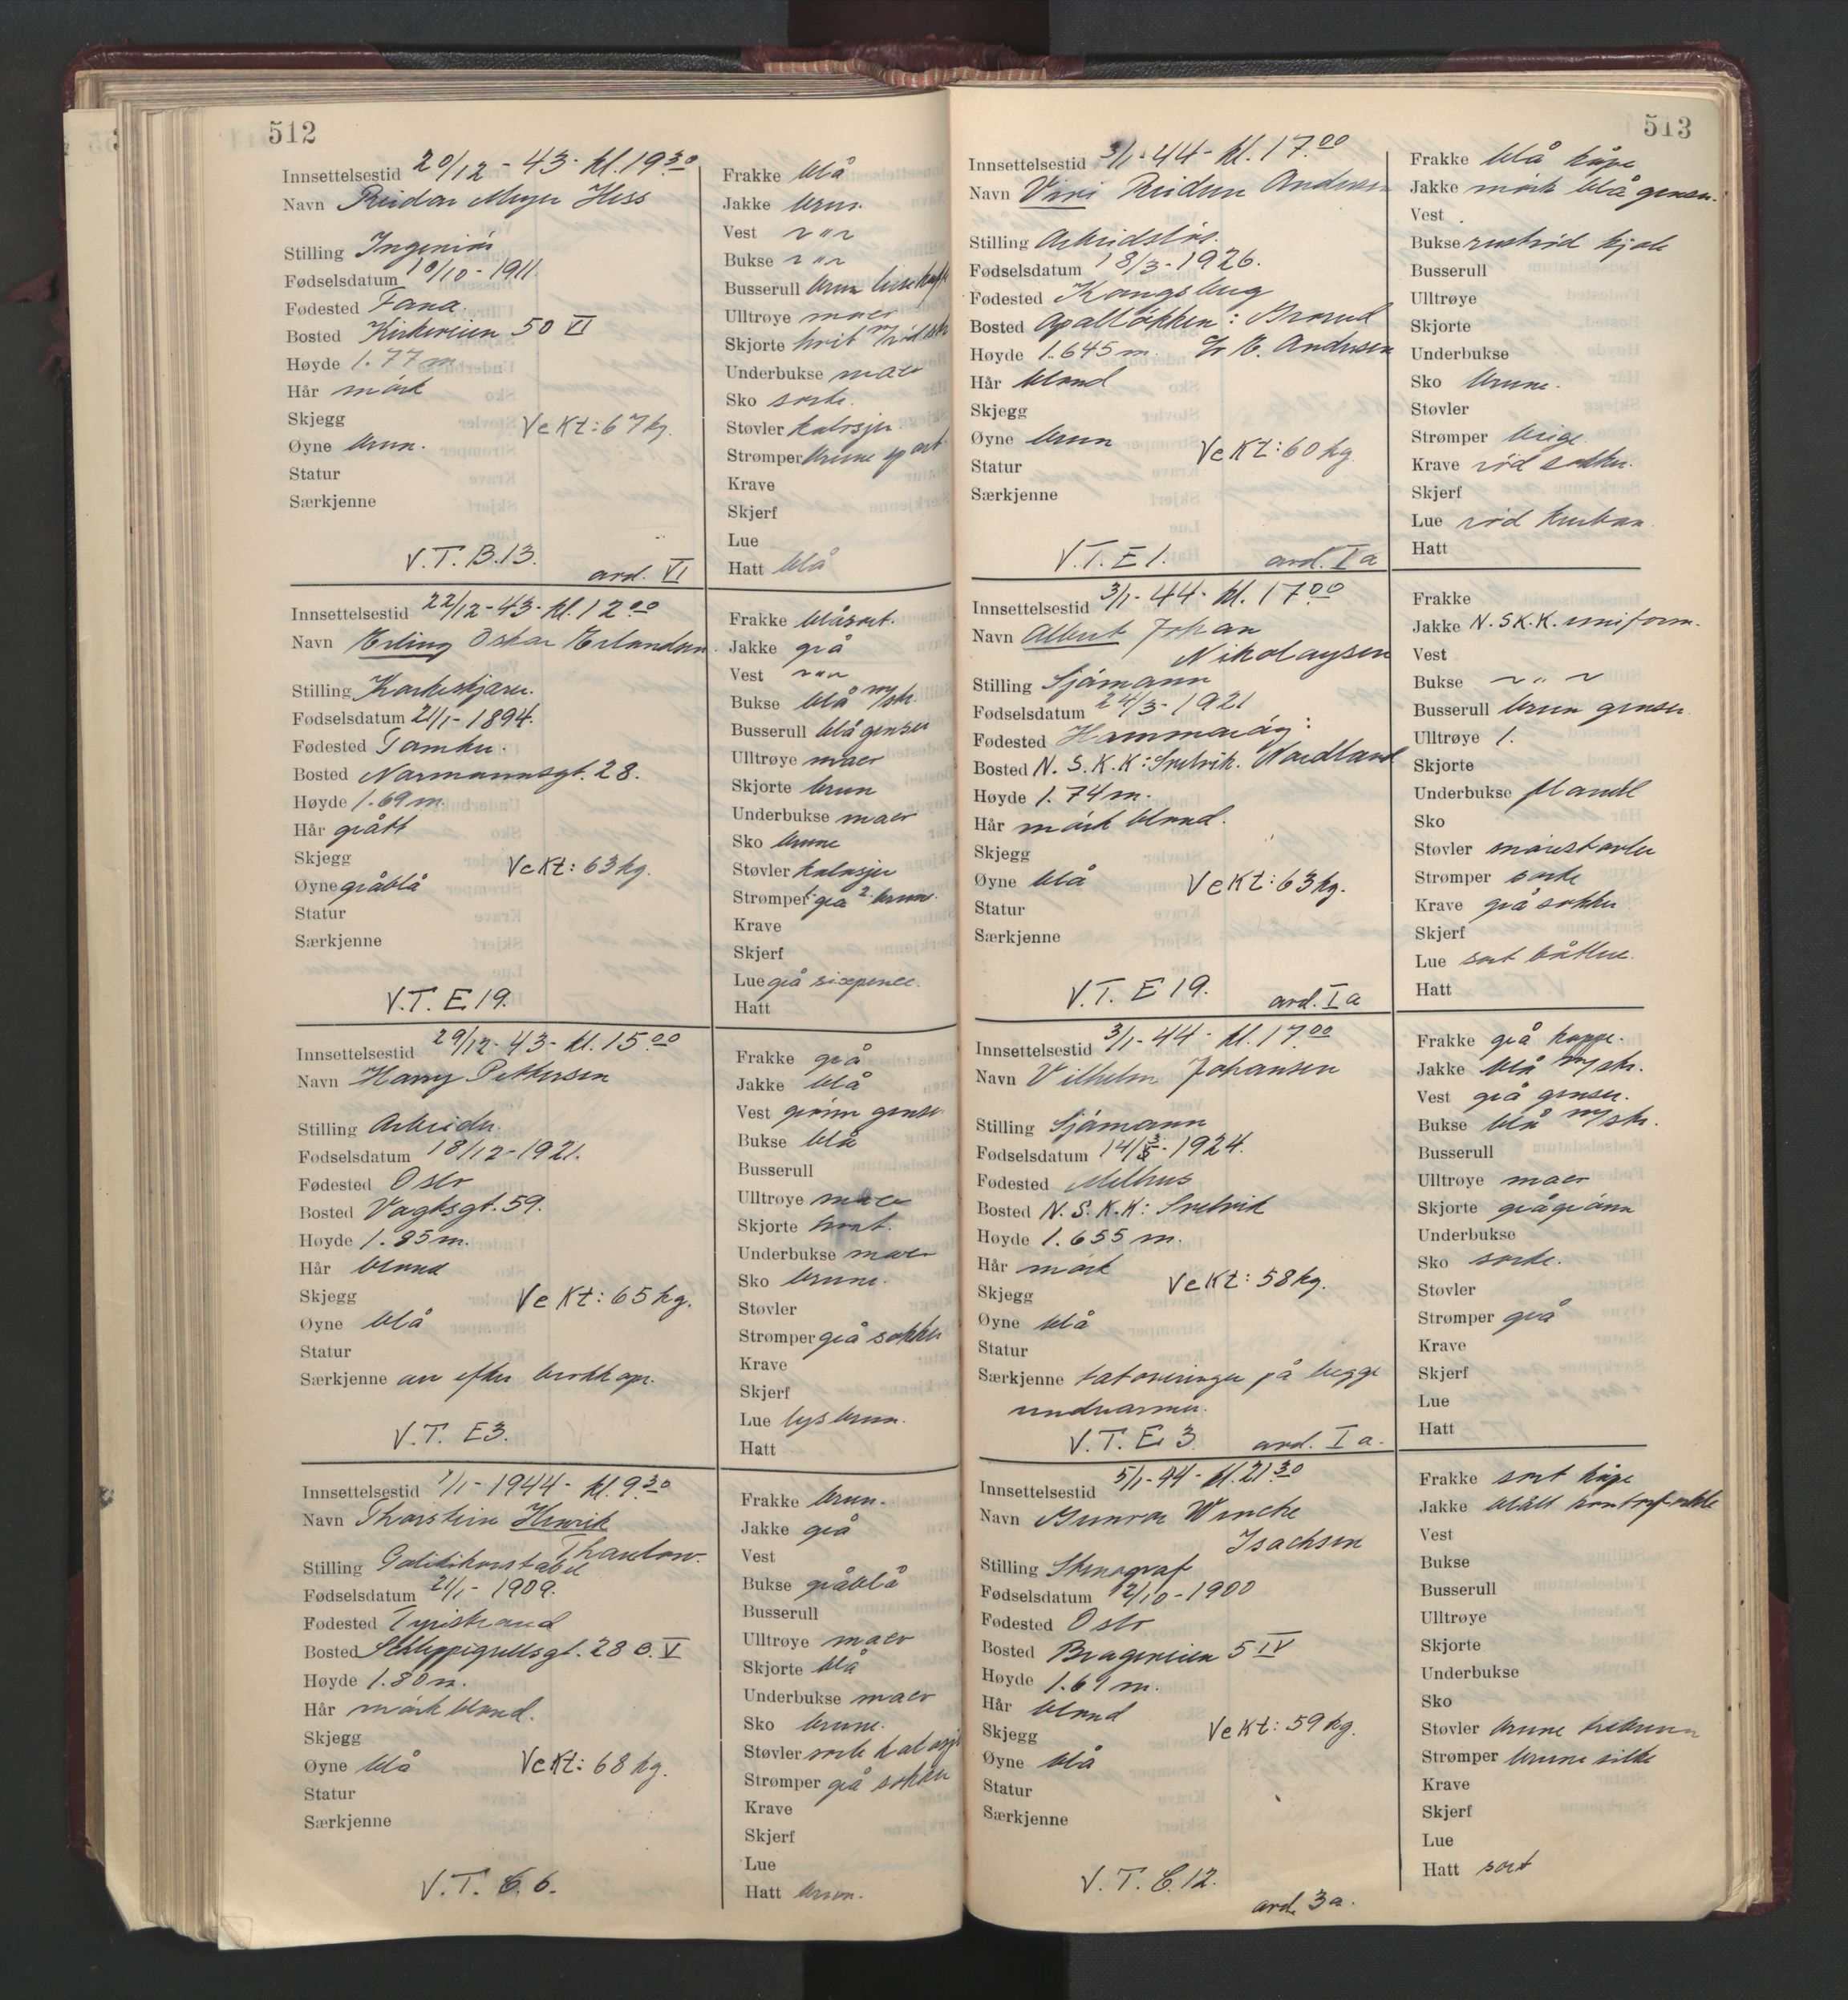 512
Innsettelsestid 20/12 - 43 - kl. 19 30
Navn Reidar Meyer Hess
Stilling Ingeniør
Fødselsdatum 10/10 - 1911
Fødested Fana.
Bosted Kirkeveien 50 VI
Høyde 1.77 m
Hår mørk
Skjegg
Vekt: 67 kg.
Øyne brun.
Statur
Særkjenne
V.T. B.13.
avd. VI
Frakke blå
Jakke brun
Vest ~ " ~
Bukse ~ " ~
Busserull brun
Ulltrøye maco
Skjorte hvit
Underbukse maco
Sko sorte.
Støvler kalosjer.
Strømper brune sport
Krave
Skjerf
Lue
Hatt blå
Innsettelsestid 22/12 - 43 - kl. 12 00
Navn Erling Oskar Erlandsen
Stilling Korkeskjærer.
Fødselsdatum 21/1 - 1894.
Fødested Tamhu.
Bosted Normannsgt. 28.
Høyde 1.69 m.
Hår grått
Skjegg
Vekt: 63 kg.
Øyne gråblå
Statur
Særkjenne
V.T. E 19.
Frakke blåsort.
Jakke grå
Vest ~ " ~
Bukse blå m/str.
Busserull blå genser
Ulltrøye maco
Skjorte brun
Underbukse maco
Sko brune
Støvler kalosjer
Strømper 1. grå 2. brun.
Krave
Skjerf
Lue grå sixpence.
Hatt
Innsettelsestid 29/12 - 43 - kl. 15 00
Navn Harry Pettersen
Stilling Arbeider.
Fødselsdatum 18/12 - 1921.
Fødested Oslo
Bosted Vogtsgt. 59.
Høyde 1.85 m.
Hår blond
Skjegg
Vekt: 65 kg.
Øyne blå
Statur
Særkjenne arr efter brokk opr.
V.T. E3.
Frakke grå
Jakke blå
Vest grønn genser
Bukse blå
Busserull
Ulltrøye maco
Skjorte hvit.
Underbukse maco
Sko brune.
Støvler
Strømper grå sokker
Krave
Skjerf
Lue lysbrun.
Hatt
Innsettelsestid 1/1 - 1944 - kl. 9 30
Navn Thorstein Henrik
Thaulow.
Stilling Politikonstabel
Fødselsdatum 21/1 - 1909.
Fødested Tyristrand
Bosted Schleppegrellsgt. 28 B. V
Høyde 1.80 m.
Hår mørk blond.
Skjegg
Vekt: 68 kg.
Øyne blå
Statur
Særkjenne
V.T. C. 6.
Frakke brun.
Jakke grå
Vest
Bukse gråblå
Busserull
Ulltrøye maco
Skjorte blå
Underbukse maco
Sko brune.
Støvler sorte kalosjer
Strømper grå sokker
Krave
Skjerf
Lue
Hatt brun.
513
Innsettelsestid 3/1 - 44 - kl. 17 00
Navn Vivi Reidun Andersen
Stilling Arbeidsløs.
Fødselsdatum 18/3 - 1926.
Fødested Kongsberg
Bosted Apalløkken: Grorud
Høyde 1.645 m. c/o E. Andersen
Hår blond
Skjegg
Øyne brun
Vekt: 60 kg.
Statur
Særkjenne
V.T. E 1.
avd. I a
Frakke blå kåpe
Jakke mørk blå genser.
Vest
Bukse rustrød kjole
Busserull
Ulltrøye
Skjorte
Underbukse
Sko brune.
Støvler
Strømper beige
Krave rød sokker.
Skjerf
Lue rød turban
Hatt
Innsettelsestid 3/1 - 44 - kl. 17 00
Navn Albert Johan
Nikolaysen
Stilling Sjømann
Fødselsdatum 24/3 - 1921
Fødested Hammarøy:
Bosted N.S.K.K: Snelvik. Nordland
Høyde 1.74 m.
Hår mørk blond.
Skjegg
Øyne blå
Vekt: 63 kg.
Statur
Særkjenne
V.T. E 19.
avd. I a
Frakke
Jakke N.S.K.K. uniform.
Vest
Bukse ~ " ~
Busserull brun genser
Ulltrøye 1.
Skjorte
Underbukse flanell
Sko
Støvler marsjstøvler
Strømper sorte
Krave grå sokker
Skjerf
Lue sort båtlue.
Hatt
Innsettelsestid 3/1 - 44 - kl. 17.00
Navn Vilhelm Johansen
Stilling Sjømann
Fødselsdatum 14/3 - 1924.
Fødested Melhus
Bosted N.S.K.K: Snelvik
Høyde 1.655 m.
Hår mørk
Vekt: 58 kg.
Skjegg
Øyne blå
Statur
Særkjenne tatoveringer på begge
underarmer.
V.T. E 3.
avd. I a.
Frakke grå kappe.
Jakke blå m/str.
Vest grå genser.
Bukse blå m/str.
Busserull
Ulltrøye maco
Skjorte grågrønn
Underbukse
Sko sorte.
Støvler
Strømper grå
Krave
Skjerf
Lue
Hatt
Innsettelsestid 5/1 - 44 - kl. 21 30
Navn Gunvor Wincke
Isachsen
Stilling Stenograf
Fødselsdatum 12/10 - 1900
Fødested Oslo
Bosted Brageveien 5 IV
Høyde 1.69 m.
Hår blond
Skjegg
Vekt: 59 kg.
Øyne blå
Statur
Særkjenne
V.T. C. 12.
avd. 3a.
Frakke sort kåpe
Jakke blått kontorfrakke
Vest
Bukse
Busserull
Ulltrøye
Skjorte
Underbukse
Sko
Støvler brune
Strømper brune silke
Krave
Skjerf
Lue
Hatt sort